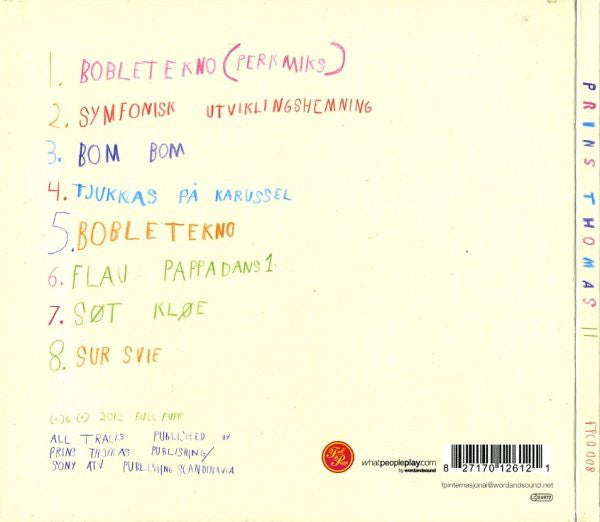 1. BOBLETEKNO (PERKMIKS)
2. SYMFONISK UTVIKLINGSHEMNING
3. BOM BOM
4. TJUKKAS PÅ KARUSSEL
5. BOBLETEKNO
6. FLAU PAPPADANS 1.
7. SØT KLØE
8. SUR SVIE
2012 FULL PUPP
ALL TRACKS PUBLISHED BY
PRINS THOMAS PUBLISHING/
SONY ATV PUBLISHING SCANDINAVIA
Full Pupp
whatpeopleplay.com
by wordandsound
8 27170 12612 1
fpinternasjonal@wordandsound.net
PRINS THOMAS II
FPCD 008